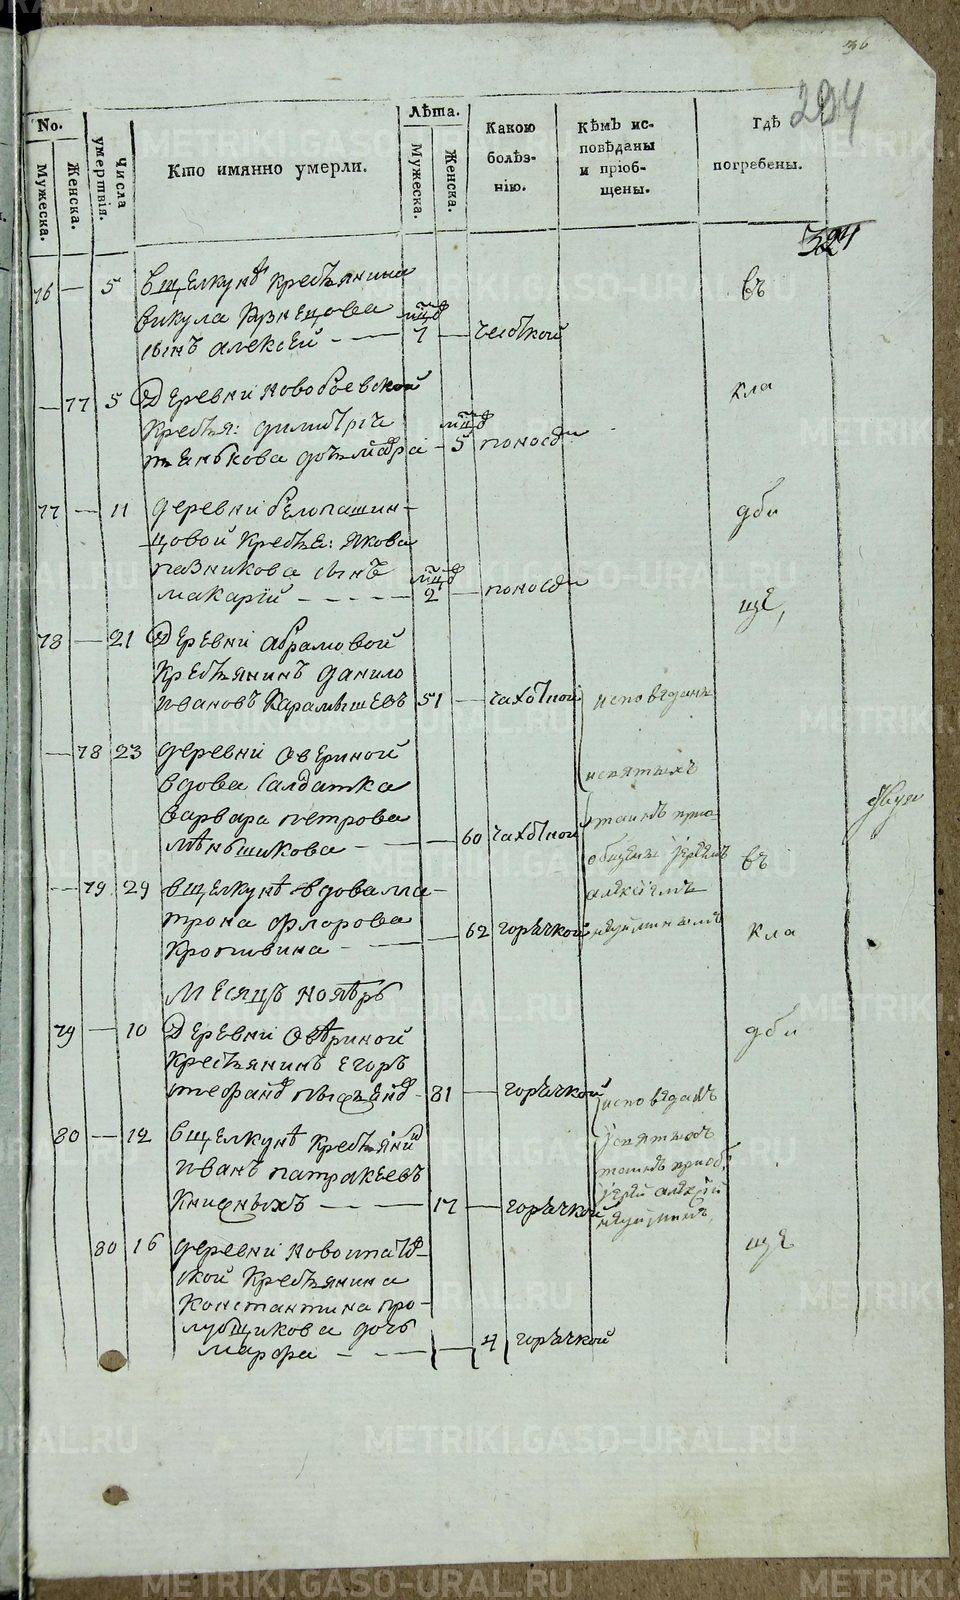 36
294
No.
Мужеска.
Женска.
Числа умертвія.
Кто имянно умерли.
Лѣта.
Мужеска.
Женска.
Какою болѣз-
нію.
Кѣмъ ис-
повѣданы
и пріоб-
щены.
Гдѣ
погребены.
76 — 5 вщелкунѣ крестьянина
викула Кузнецова
сынъ алексей — — 1 — чесоткой
въ
— 77 5 Деревни новобоевской
Крестья: димитрія
дочь — 5 поносом
кла
77 — 11 деревни белопашин-
цовой Крестья: Якова
пазникова сынъ
макарій — — — 2 — поносом
дби
ще,
78 — 21 Деревни абрамовой
Крестьянинъ данило
ивановъ Карамышевъ 51 — чахоткой
исповеданъ
— 78 23 деревни Овериной
вдова салдатка
варвара петрова
мѣньшикова — — 60 чахоткой
и святыхъ
таинъ прио-
— 79 29 вщелкунѣ вдова мат-
рона флорова
Кропивина — — 62 горячкой
въ
кла
Месяцъ ноябрь
79 — 10 Деревни Овѣриной
Крестьянинъ Егоръ
81 — горячкой
дби
исповеданъ
80 — 12 вщелкунѣ Крестьянинъ
иванъ патракеевъ
Книжныхъ — — 17 — горячкой
и святыхъ
таинъ приоб:
іерей алексій
80 16 деревни новоипат-
ской Крестьянина
Константина про-
лубщикова дочь
марфа — — — 4 горячкой
ще
METRIKI.GASO-URAL.RU